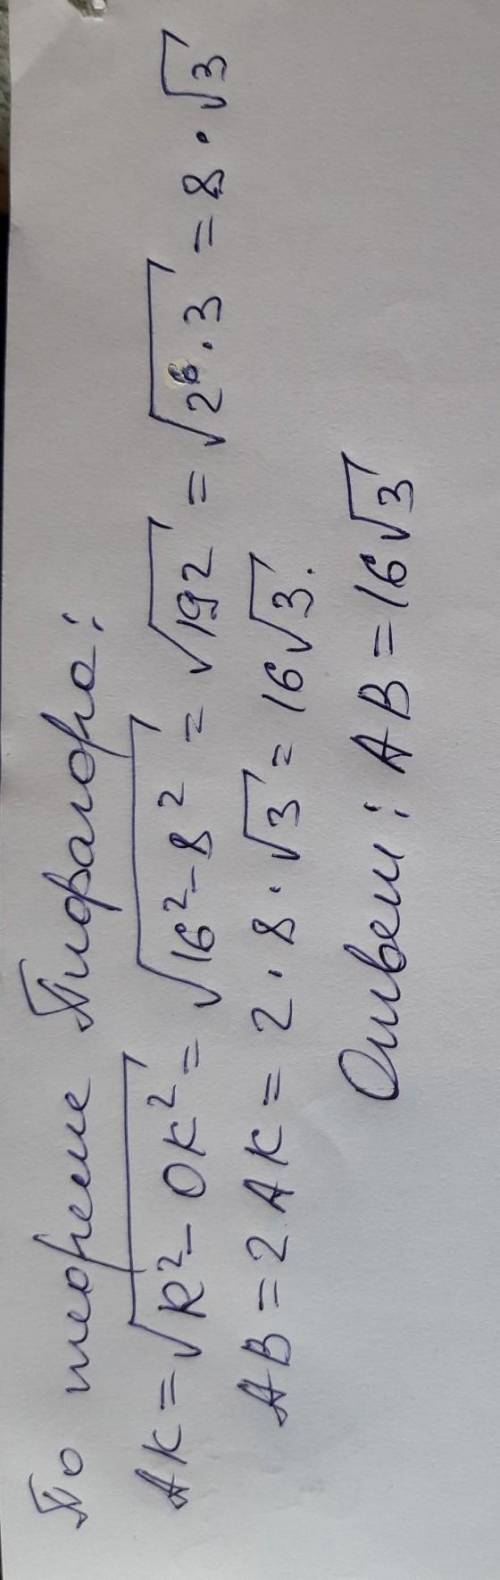 По теореме Пифагора:
AK = √R² - OK² = √16² - 8² = √192 = √2⁶ · 3 = 8 · √3
AB = 2 AK = 2 · 8 · √3 = 16√3.
Ответ: AB = 16√3